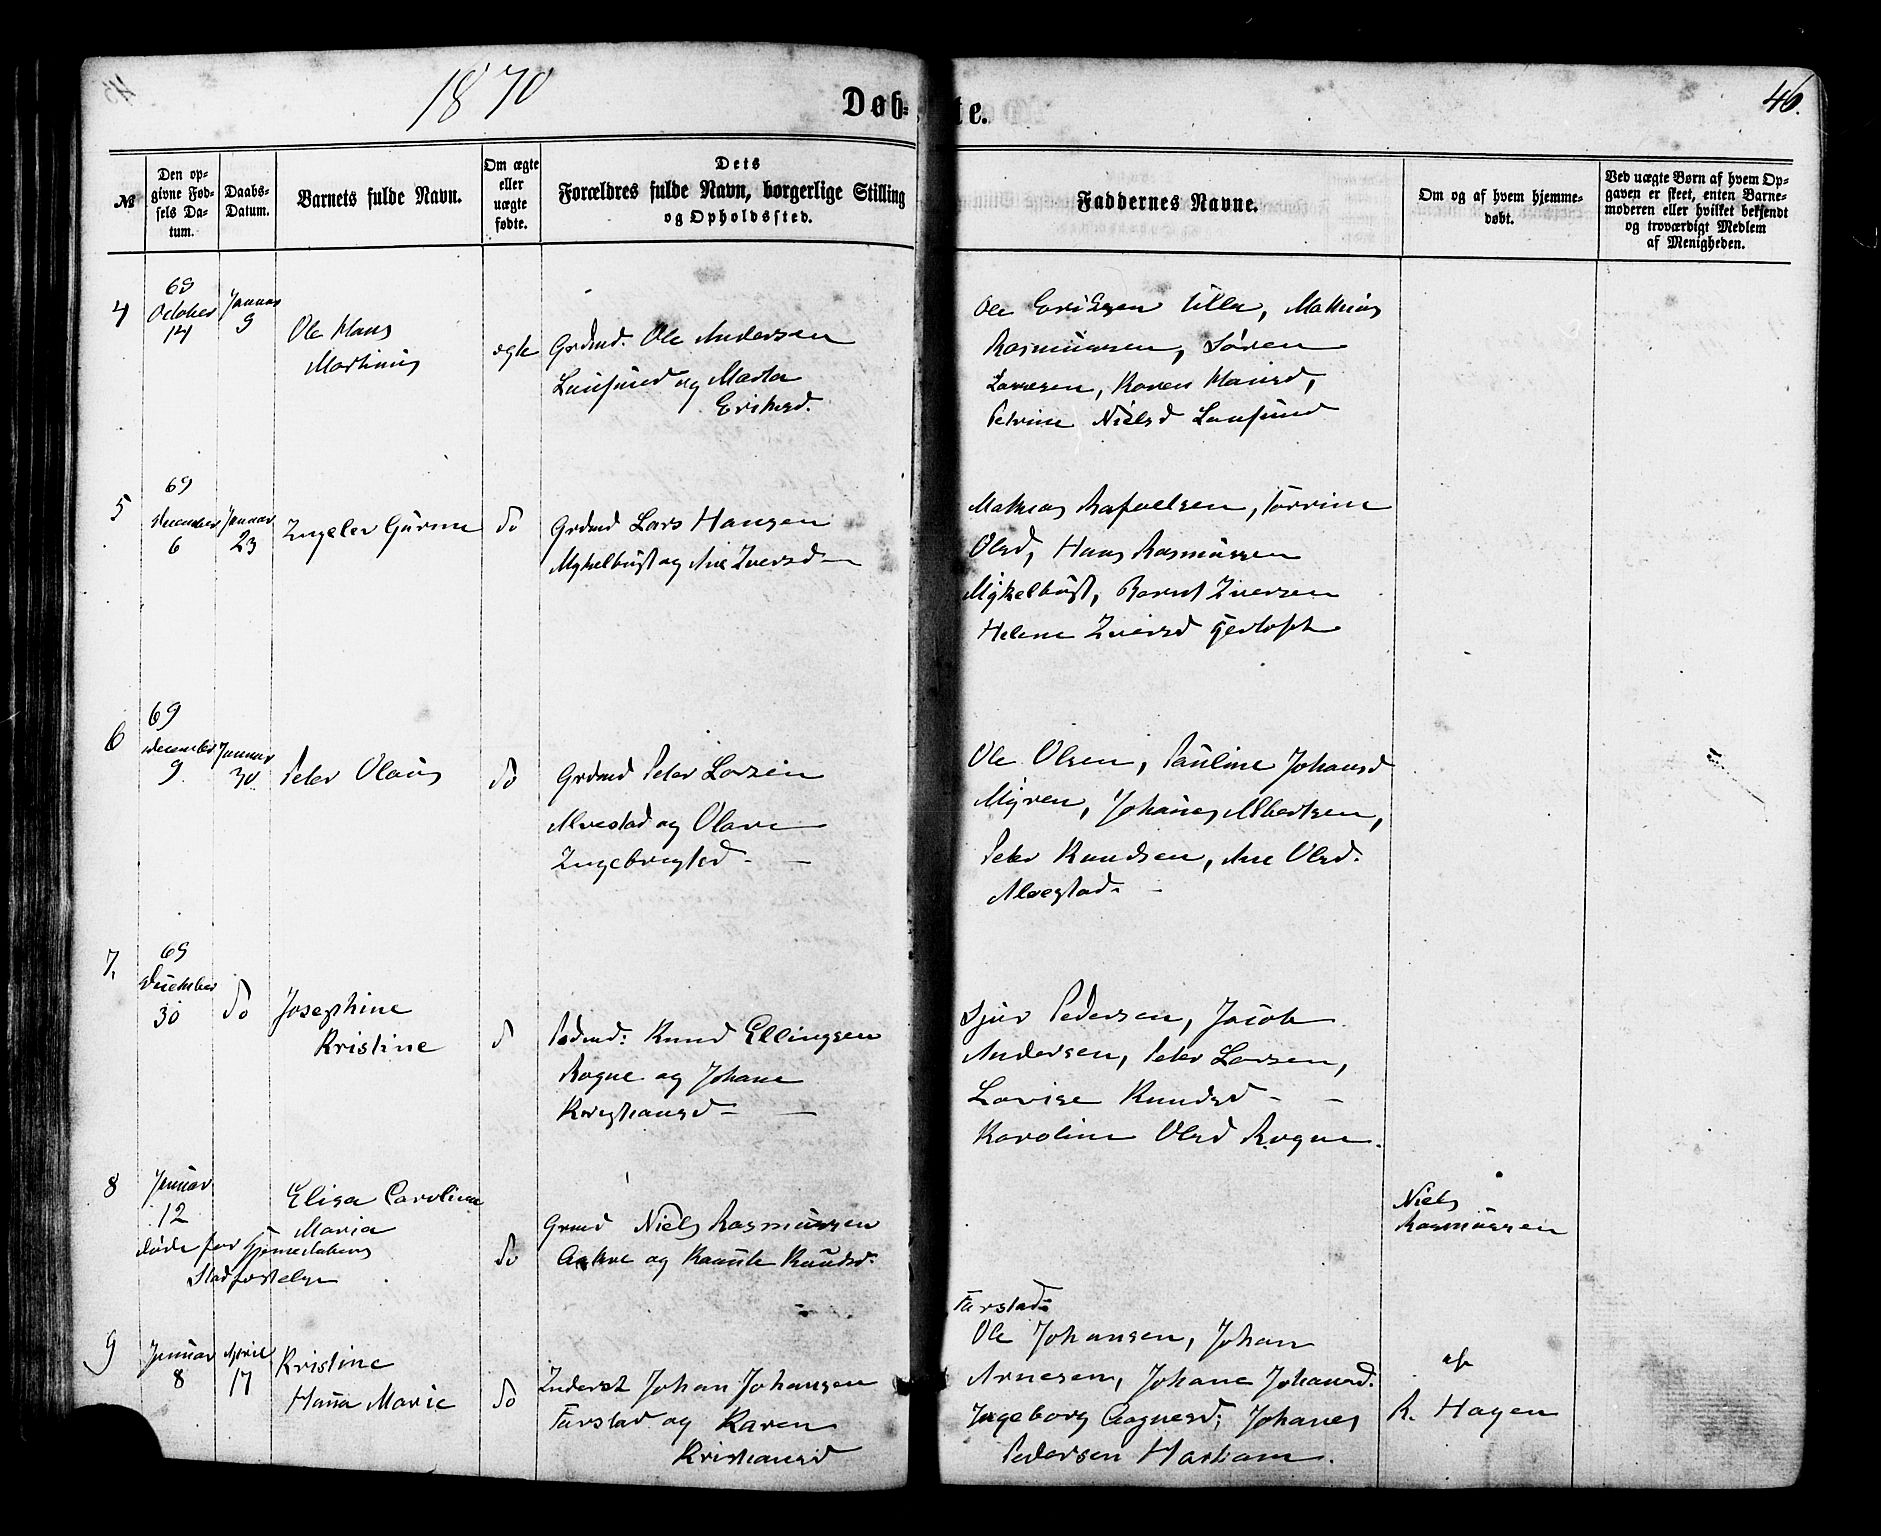 1870
Døb-
te.
46.
№
Den op-
givne Fød-
sels Da-
tum.
Daabs-
Datum.
Barnets fulde Navn.
Om ægte
eller
uægte
fødte.
Dets
Forældres fulde Navn, borgerlige Stilling
og Opholdssted.
Faddernes Navne.
Om og af hvem hjemme-
døbt.
Ved uægte Børn af hvem Op-
gaven er skeet, enten Barne-
moderen eller hvilket bekjendt
og troværdigt Medlem
af Menigheden.
4
69
October
14
Januar
9
Ole Hans
Martinus
ægte
Grdmd. Ole Andersen
og Marta
Eriksd.
Ole Eriksen Ulla, Mathias
Rasmussen, Søren
Larsen, Karen Hansd,
Petrine Nielsd
5
69
December
6
Januar
23
Ingeler Gurine
do
Grdmd Lars Hansen
Mykelbust og Ane Iversd
Mathias Rafaelsen, Torrine
Olsd, Hans Rasmussen
Mykelbust, Bernt Iversen
Helene Iversd
6
69
December
9
Januar
30
Peter Olaus
do
Grdmd Peter Larsen
Alvestad og Olave
Ingebrigtsd
Ole Olsen, Pauline Johansd
Myren, Johanes Albertsen,
Peter Knudsen, Ane Olsd.
Alvestad.
7.
69
December
30
do
Josephine
Kristine
d
Pdmd: Knud Ellingsen
Rogne og Johane
Kristiansd
Sjur Pedersen, Jacob
Andersen, Peter Larsen,
Lovise Knudsd
Karoline Olsd Rogne.
8
Januar
12
døde før Hjemedaabens
Stadfæstelse
Elisa Carolina
Maria
do
Grmd Niels Rasmussen
og Knudsd.
Niels
Rasmussen
9
Januar
8
April
17
Kristine
Hana Marie
do
Inderst Johan Johansen
Farstad og Karen
Kristiansd
Farstad:
Ole Johansen, Johan
Arnesen, Johane Johansd.
Ingeborg Aagnesd; Johanes
Pedersen Harham.
af
R. Hagen